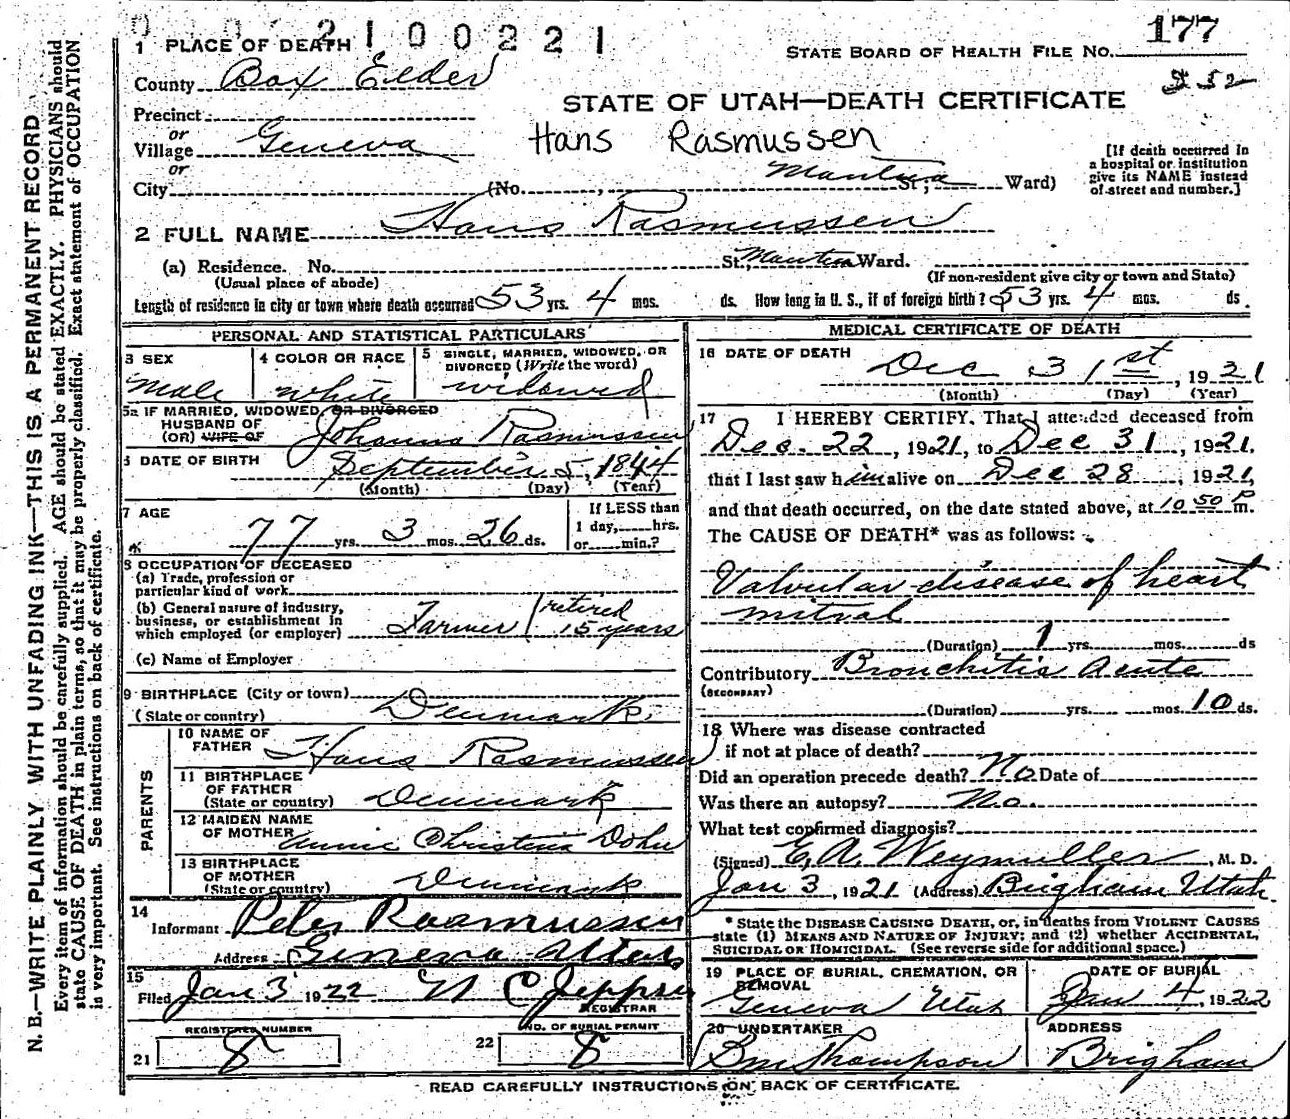 2100221
177
1 PLACE OF DEATH
STATE BOARD OF HEALTH FILE NO.
County Box Elder
STATE OF UTAH—DEATH CERTIFICATE
Precinct
or
Village Geneva
Hans Rasmussen
or
City (No. , Mantua St; Ward)
[If death occurred in
a hospital or institution
give its NAME instead
of street and number.]
2 FULL NAME Hans Rasmussen
(a) Residence. No. St, Mantua Ward.
(Usual place of abode) (If non-resident give city or town and State)
Length of residence in city or town where death occurred 53 yrs. 4 mos. ds. How long in U. S., if of foreign birth? 53 yrs. 4 mos. ds.
PERSONAL AND STATISTICAL PARTICULARS
3 SEX
Male
4 COLOR OR RACE
White
5 SINGLE, MARRIED, WIDOWED, OR
DIVORCED (Write the word)
widowed
5a IF MARRIED, WIDOWED, OR DIVORCED
HUSBAND OF
(OR) WIFE OF Johanna Rasmussen
6 DATE OF BIRTH September 5, 1844
(Month) (Day) (Year)
7 AGE
77 yrs. 3 mos. 26 ds.
If LESS than
1 day, hrs.
or min.?
8 OCCUPATION OF DECEASED
(a) Trade, profession or
particular kind of work
(b) General nature of industry,
business, or establishment in
which employed (or employer) Farmer / retired
15 years
(c) Name of Employer
9 BIRTHPLACE (City or town)
(State or country) Denmark.
PARENTS
10 NAME OF
FATHER Hans Rasmussen
11 BIRTHPLACE
OF FATHER
(State or country) Denmark
12 MAIDEN NAME
OF MOTHER Annie Christina
13 BIRTHPLACE
OF MOTHER
(State or country) Denmark
14
Informant Peter Rasmussen
Address Geneva Utah
15
Filed Jan 3 1922 C Jeppsen
REGISTRAR
REGISTERED NUMBER
21 8
NO. OF BURIAL PERMIT
22 8
MEDICAL CERTIFICATE OF DEATH
16 DATE OF DEATH
Dec 31st, 1921
(Month) (Day) (Year)
17 I HEREBY CERTIFY, That I attended deceased from
Dec. 22, 1921, to Dec 31, 1921,
that I last saw him alive on Dec 28, 1921,
and that death occurred, on the date stated above, at 10 50 P m.
The CAUSE OF DEATH* was as follows:
Valvular disease of heart
mitral
(Duration) 1 yrs. mos. ds
Contributory Bronchitis Acute
(SECONDARY)
(Duration) yrs. mos. 10 ds.
18 Where was disease contracted
if not at place of death?
Did an operation precede death? No Date of
Was there an autopsy? No.
What test confirmed diagnosis?
(Signed) E. A. Weymuller, M. D.
Jan 3, 1921 (Address) Brigham Utah.
* State the DISEASE CAUSING DEATH, or, in deaths from VIOLENT CAUSES
state (1) MEANS AND NATURE OF INJURY; and (2) whether ACCIDENTAL,
SUICIDAL OR HOMICIDAL. (See reverse side for additional space.)
19 PLACE OF BURIAL, CREMATION, OR
REMOVAL
Geneva Utah
DATE OF BURIAL
Jan 4, 1922
20 UNDERTAKER
Thompson
ADDRESS
Brigham
READ CAREFULLY INSTRUCTIONS ON BACK OF CERTIFICATE.
N. B.—WRITE PLAINLY WITH UNFADING INK—THIS IS A PERMANENT RECORD
Every item of information should be carefully supplied. AGE should be stated EXACTLY. PHYSICIANS should
state CAUSE OF DEATH in plain terms, so that it may be properly classified. Exact statement of OCCUPATION
is very important. See instructions on back of certificate.